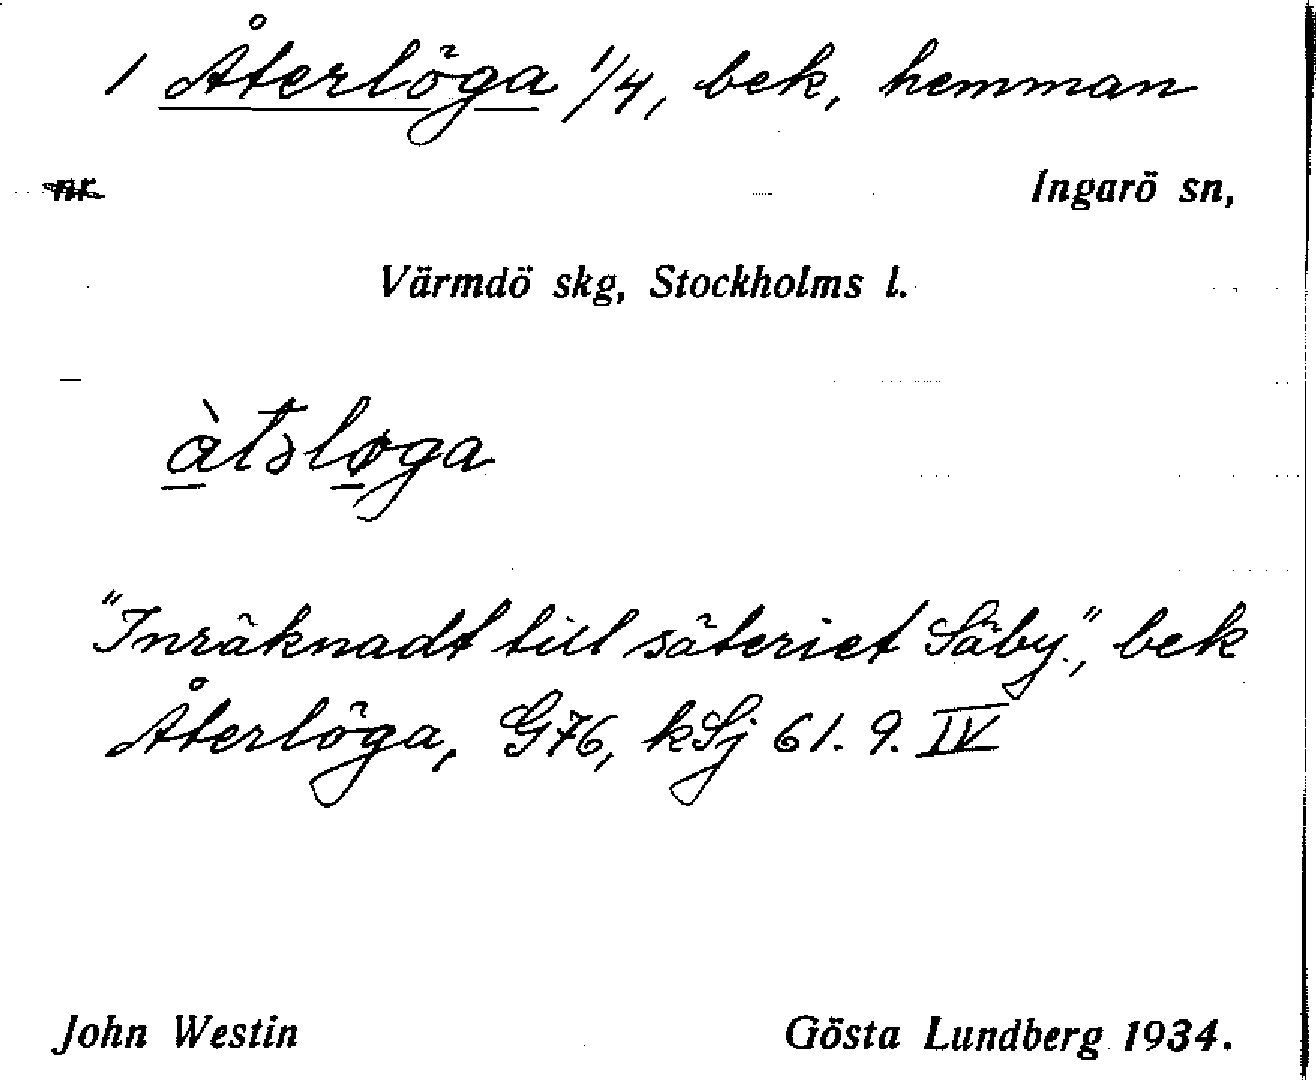 1 Återlöga 1/4, bek, hemman
nr
Ingarö sn,
Värmdö skg, Stockholms l.
àtəløga
"Inräknadt till säteriet Säby.", bek
Återlöga, G76, kSj 61. 9. IV
John Westin
Gösta Lundberg 1934.